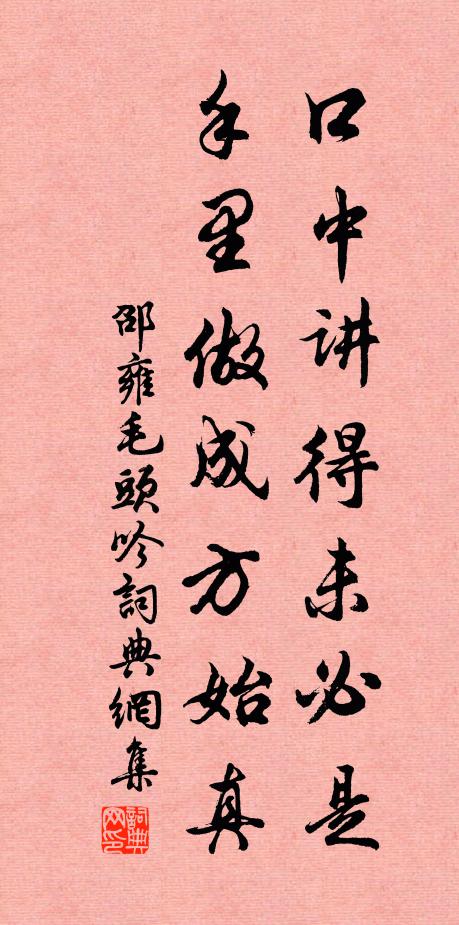 口中讲得未必是
手里做成方始真
邵雍毛頭吟詞典網集
詞典网印